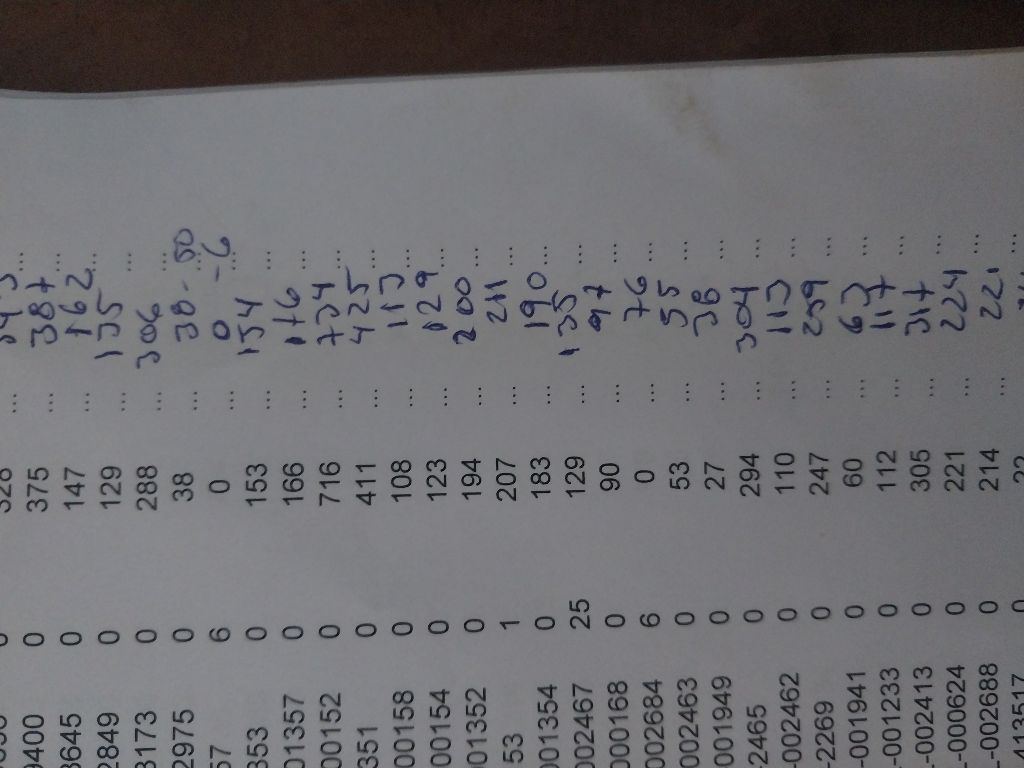 9400 0 375 ... 387 ...
3645 0 147 ... 162 ...
2849 0 129 ... 135 ...
3173 0 288 ... 306 ...
29975 0 38 ... 38 - ...
57 6 0 ... 0 - 6 ...
353 0 153 ... 154 ...
01357 0 166 ... 176 ...
00152 0 716 ... 734 ...
351 0 411 ... 425 ...
000158 0 108 ... 113 ...
000154 0 123 ... 129 ...
01352 0 194 ... 200 ...
53 1 207 ... 211 ...
001354 0 183 ... 190 ...
002467 25 129 ... 135 ...
000168 0 90 ... 97 ...
002684 6 0 ... 76 ...
002463 0 53 ... 55 ...
001949 0 27 ... 38 ...
0 294 ... 304 ...
-002462 0 110 ... 113 ...
2269 0 247 ... 259 ...
-001941 0 60 ... 63 ...
-001233 0 112 ... 117 ...
-002413 0 305 ... 317 ...
-000624 0 221 ... 224 ...
-002688 0 214 ... 221 ...
413517 0